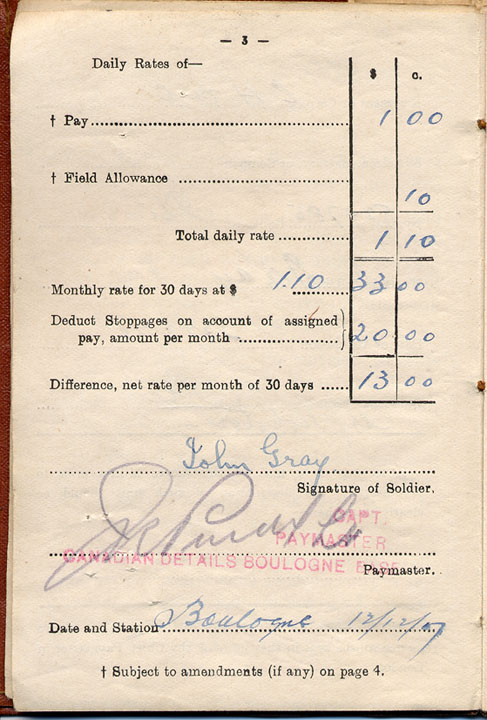 — 3 —
Daily Rates of—
$ c.
† Pay 1 00
† Field Allowance 10
Total daily rate 1 10
Monthly rate for 30 days at $ 1.10 33 00
Deduct Stoppages on account of assigned
pay, amount per month 20 00
Difference, net rate per month of 30 days 13 00
John Gray
Signature of Soldier.
CAPT.
PAYMASTER
CANADIAN DETAILS BOULOGNE BASE
Paymaster.
Date and Station Boulogne 12/12/17
† Subject to amendments (if any) on page 4.